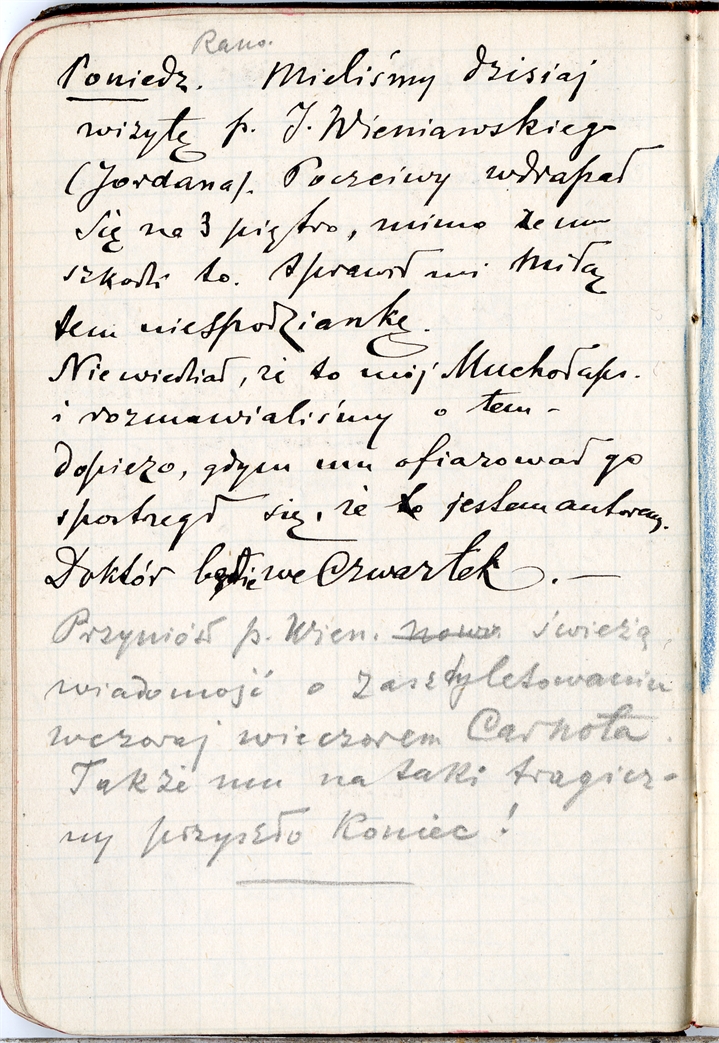 Rano.
Poniedz. Mieliśmy dzisiaj
wizytę p. J. Wieniawskiego
(Jordana). Poczciwy wdrapał
się na 3 piętro, mimo że mu
szkodzi to. Sprawił mi miłą
tem niespodziankę.
Nie wiedział, że to mój Muchołap.
i rozmawialiśmy o tem -
dopiero, gdym mu ofiarował go
spostrzegł się, że to jestem autorem.
Doktór będzie we Czwartek. —
Przyniósł p. Wien. nowo świeżą
wiadomość o zasztyletowaniu
wczoraj wieczorem Carnota.
Także mu na taki tragicz-
ny przyszło koniec!